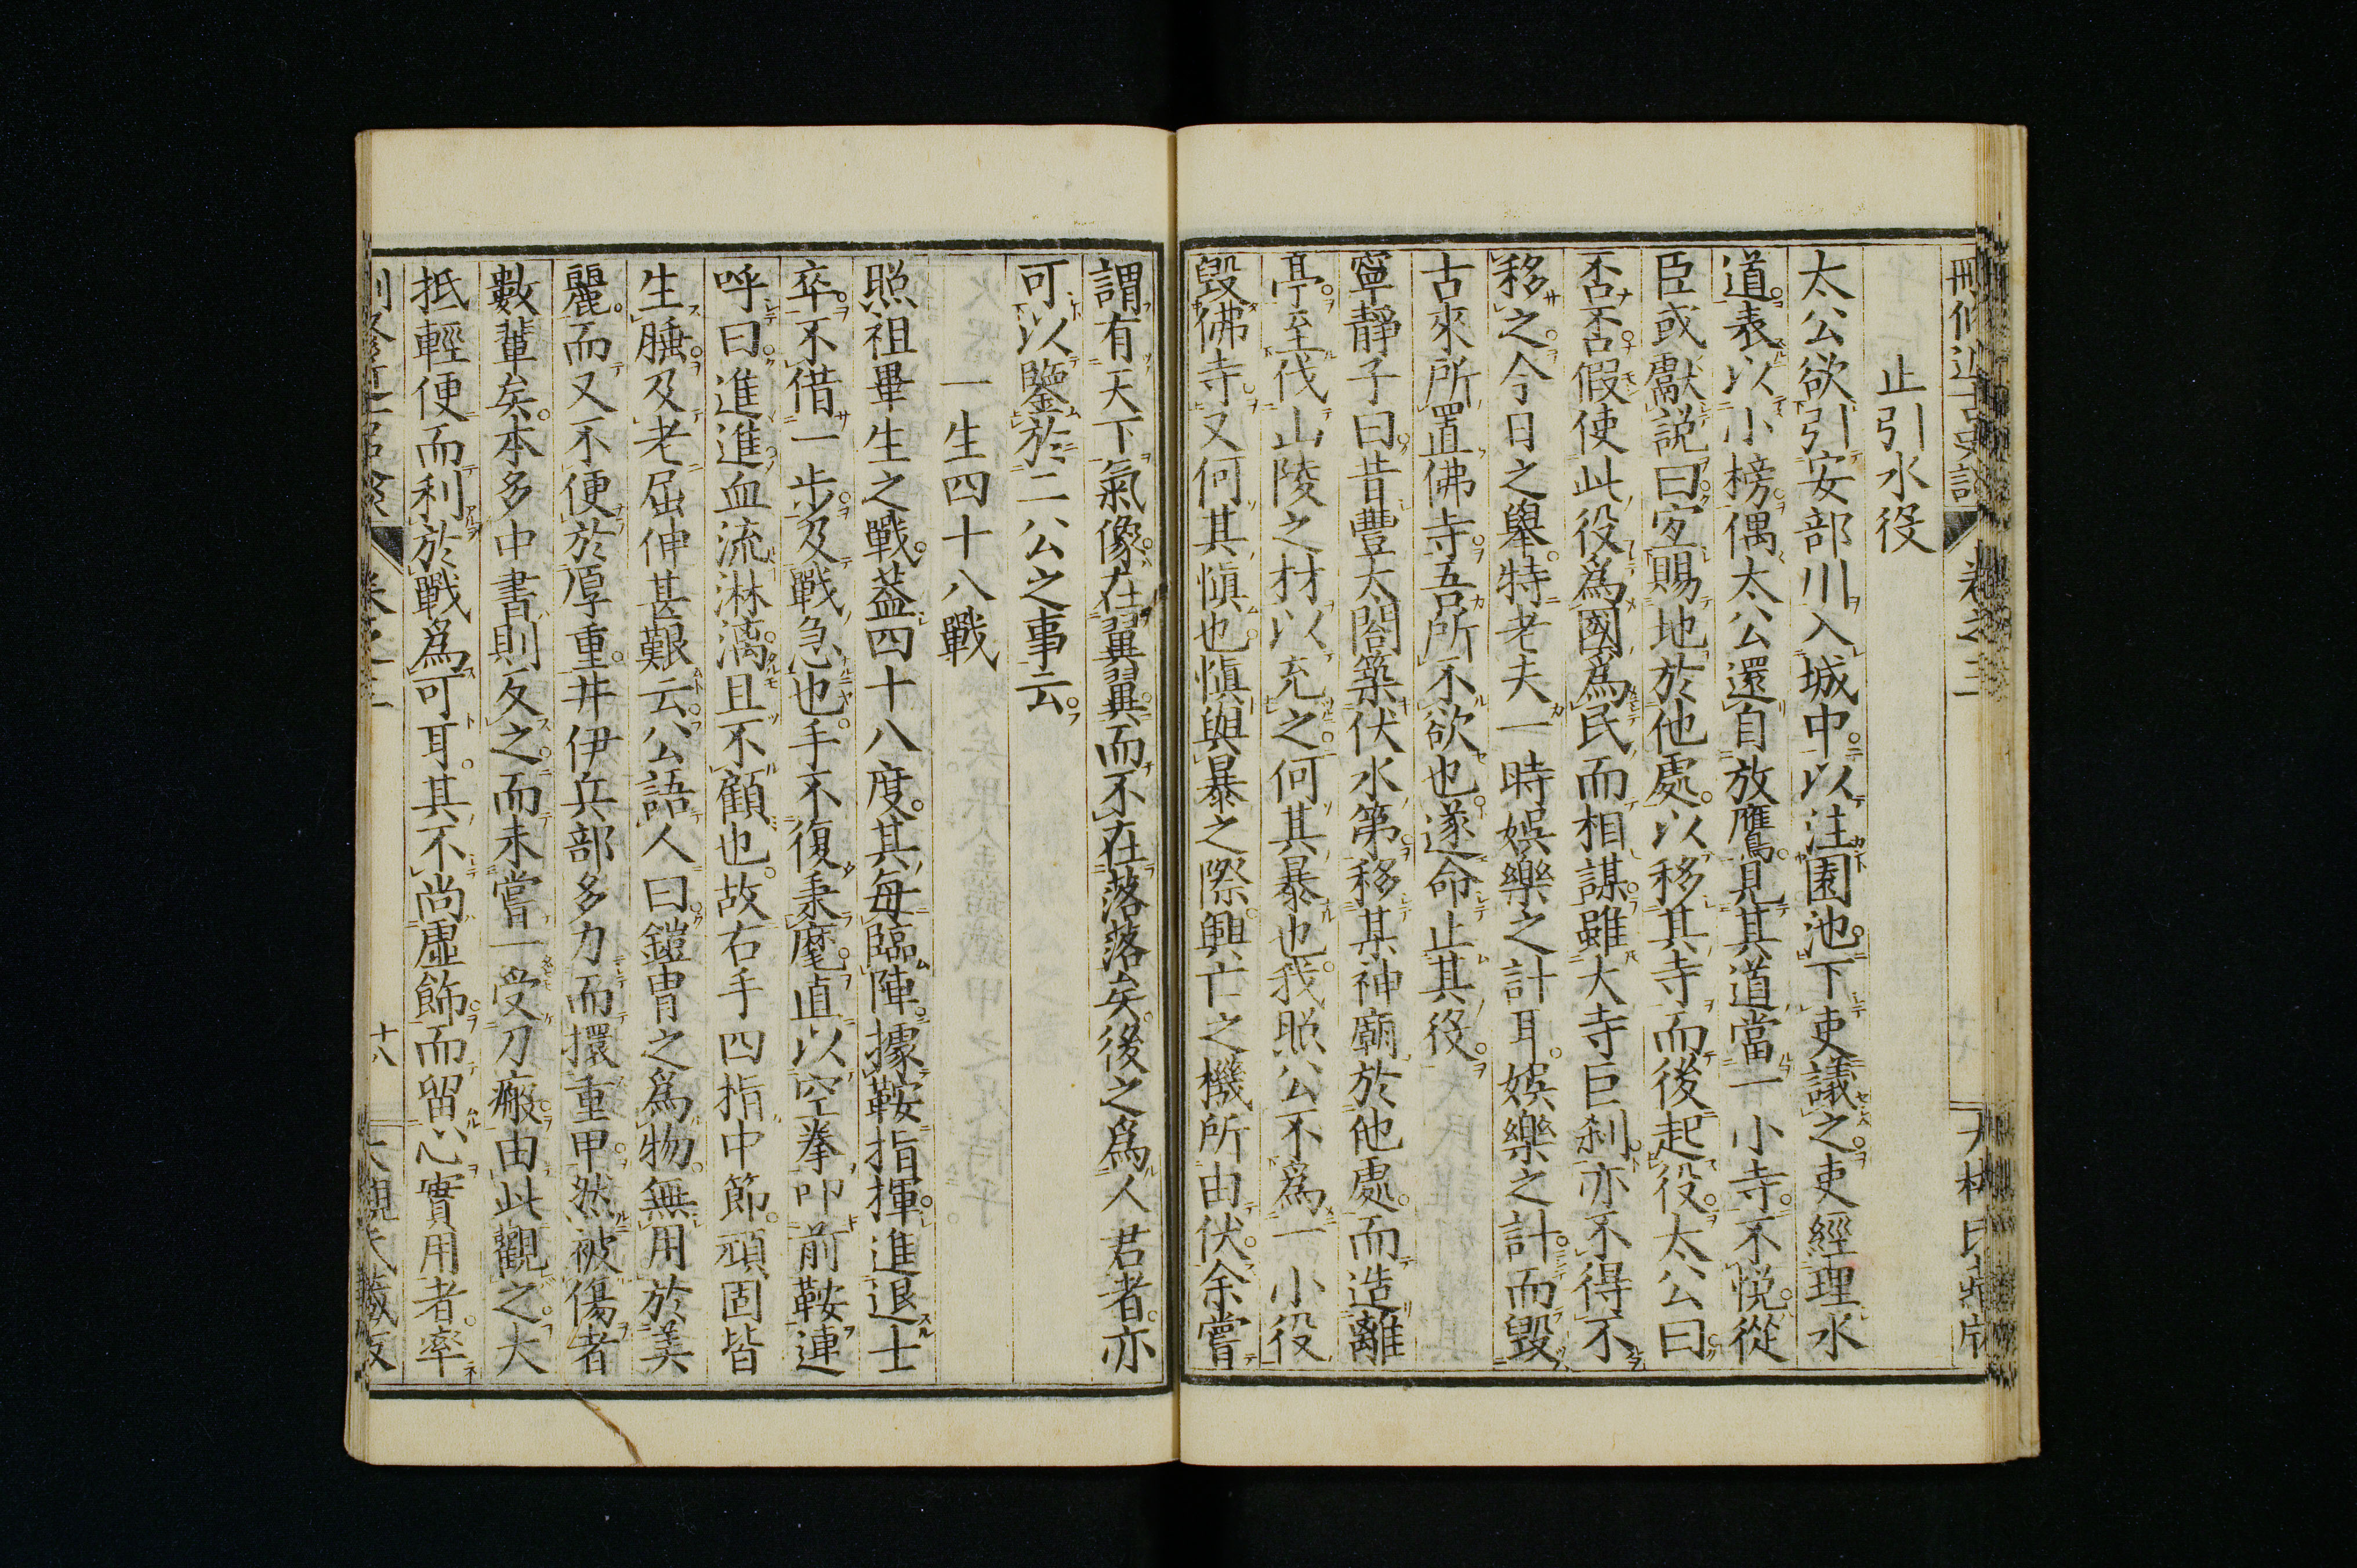 止引水役
太公欲引安部川入城中以注園池下吏議之吏經理水
道表以小榜偶太公還自放鷹見其道當一小寺不悦從
臣或獻説曰宜賜地於他處以移其寺而後起役太公曰
否否假使此役爲國爲民而相謀雖大寺巨刹亦不得不
移之今日之舉特老夫一時娯樂之計耳娯樂之計而毀
古來所置佛寺吾所不欲也遂命止其役
寧靜子曰昔豐太閤築伏水第移某神廟於他處而造離
亭至伐山陵之材以充之何其暴也我照公不爲一小役
毀佛寺又何其愼也愼與暴之際興亡之機所由伏余嘗
謂有天下氣像在翼翼而不在落落矣後之爲人君者亦
可以鑒於二公之事云
一生四十八戰
照祖畢生之戰葢四十八度其每臨陣據鞍指揮進退士
卒不借一步及戰急也手不復秉麾直以空拳叩前鞍連
呼曰進進血流淋漓且不顧也故右手四指中節頑固皆
生腄及老屈伸甚艱云公語人曰鎧冑之爲物無用於美
麗而又不便於厚重井伊兵部多力而擐重甲然被傷者
數輩矣本多中書則反之而未嘗一受刀瘢由此觀之大
抵輕便而利於戰爲可耳其不尚虛飾而留心實用者率
卷之三
十八